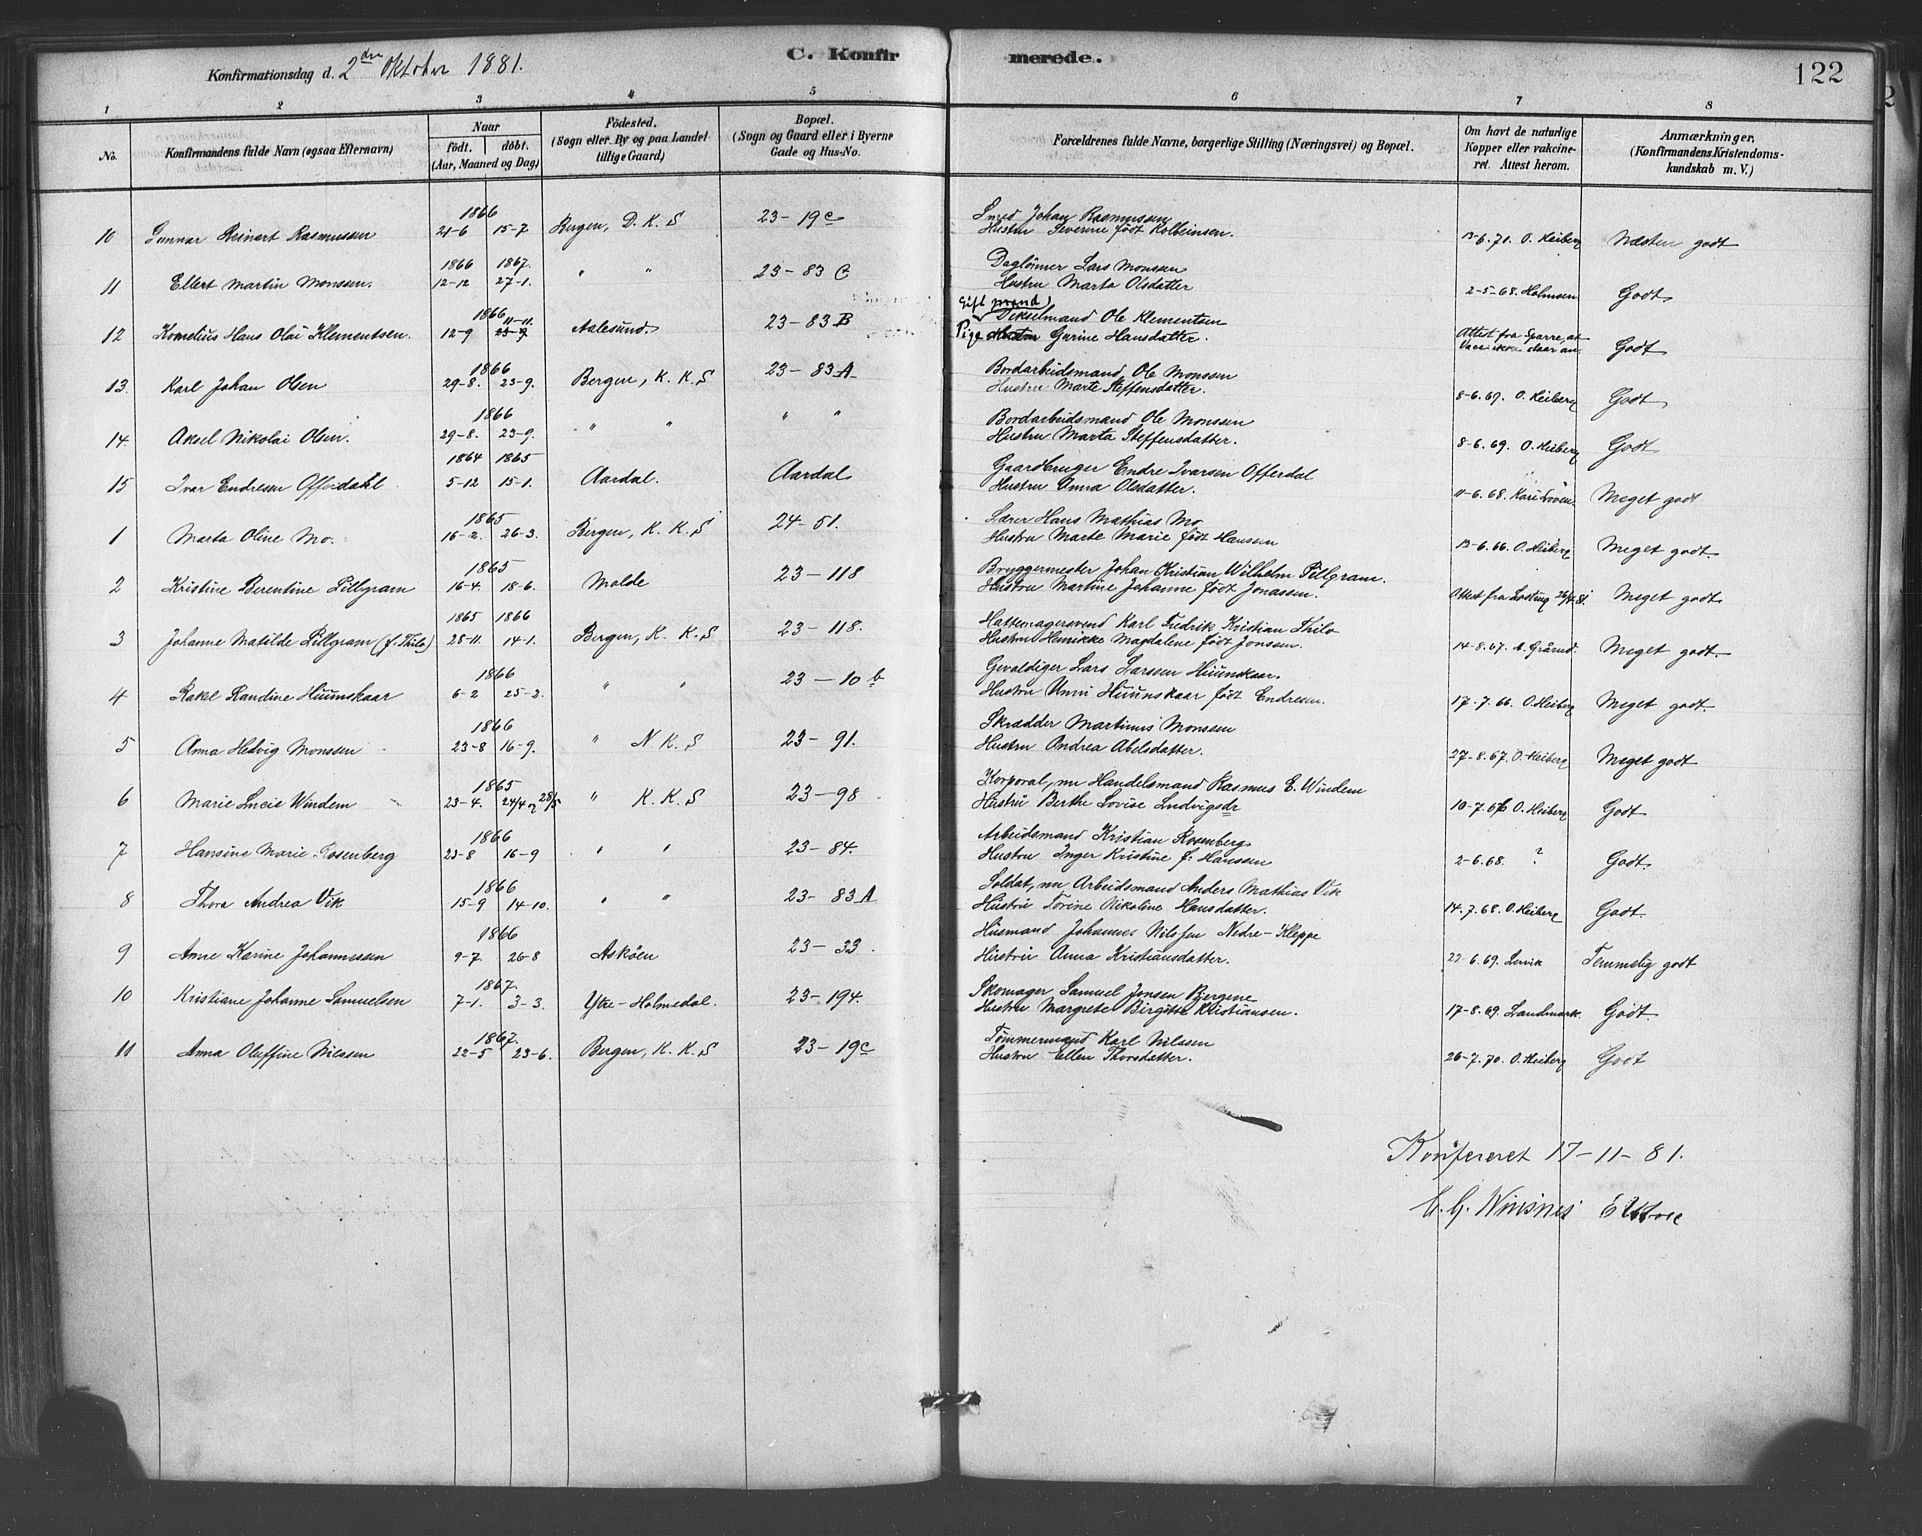 Konfirmationsdag d. 2den Oktober 1881.
C. Konfirmerede.
122
1 2 3 4 5 6 7 8
No. Konfirmandens fulde Navn (ogsaa Efternavn) Naar født. døbt. (Aar, Maaned og Dag) Fødested. (Sogn eller By og paa Landet tillige Gaard) Bopæl. (Sogn og Gaard eller i Byerne Gade og Hus-No. Forældrenes fulde Navne, borgerlige Stilling (Næringsvei) og Bopæl. Om havt de naturlige Kopper eller vakcineret. Attest herom. Anmærkninger, (Konfirmandens Kristendomskundskab m. V.)
1866 Smed Johan Rasmussen
10 Gunnar Reinert Rasmussen 21-6 15-7 Bergen, D. K. S 23-19c Hustru Severine født Kolbeinsen. 13-6.71. O. Heiberg Næsten godt
1866 1867. Dagløinner Lars Monssen
11 Ellert Martin Monssen. 12-12 27-1. " " 23-83 C Hustru Marta Olsdatter 2-5-68. Holmsen Godt
Gift mand
1866 11-11. Dikselmand Ole Klementsen
12 Kornelius Hans Olai Klementsen. 12-9 23-9 Aalesund. 23-83B Pige Hustru Gurine Hansdatter. Attest fra Sparre, at Vac. ikke slaar an. Godt
1866 Bordarbeidsmand Ole Monssen
13. Karl Johan Olsen 29-8. 23-9. Bergen, K. K. S 23-83A Hustru Marte Steffensdatter. 8-6.69. O. Heiberg Godt
1866 Bordarbeidsmand Ole Monssen
14. Aksel Nikolai Olsen. 29-8. 23-9. " " " " Hustru Marta Steffensdatter. 8-6.69. O. Heiberg Godt
1864 1865 Gaardbruger Endre Ivarsen Offerdal
15 Ivar Endresen Offerdahl 5-12 15-1. Aardal. Aardal Hustru Anna Olsdatter. 11-6.68. Meget godt
1865 Lærer Hans Mathias Mo
1 Marta Oline Mo. 16-2. 26-3. Bergen, K. K. S 24-51. Hustru Marte Marie født Hansen 13-6.66. O. Heiberg Meget godt.
1865 Bryggermester Johan Kristian Wilhelm Pillgram.
2 Kristine Berentine Pillgram 16-4. 18-6. Molde 23-118 Hustru Martine Johanne født Jonassen. Attest fra 26/4 81. Meget godt
1865 1866 Hattemagersvend Karl Fredrik Kristian Thilo
3 Johanne Matilde Pillgram (f. Thilo) 28-11. 14-1. Bergen, K. K. S 23-118. Hustru Henrikke Magdalene født Jonssen. 14-8.67. Meget godt.
1866 Gevaldiger Lars Larssen Huunskaar.
4 Rakel Randine Huunskaar 6-2 25-2. " " 23-10b Hustru Unni Huunskaar født Endresen. 17.7.66. O. Heiberg Meget godt.
1866 Skrædder Martinus Monssen
5 Anna Hedvig Monssen 23-8 16-9. " N. K. S 23-91. Hustru Andrea Abelsdatter. 27-8.67. O. Heiberg Meget godt
1865 Korporal, nu Handelsmand Rasmus E. Windem
6 Marie Lucie Windem 23-4. 24/4 og 28/5 " K. K. S 23-98 Hustru Berthe Lovise Ludvigsdr 10-7.66 O. Heiberg Godt
1866 Arbeidsmand Kristian Rosenberg
7 Hansine Marie Rosenberg 23-8 16-9 " " 23-84. Hustru Inger Kristine f. Hanssen 2-6.68. ? Godt.
1866 Soldat, nu Arbeidsmand Anders Mathias Vik
8 Thora Andrea Vik 15-9 14-10. " " 23-83A Hustru Torine Nikoline Hansdatter. 14.7.68. O. Heiberg Godt
1866 Husmand Johannes Nilssen Nedre-Kleppe
9 Anne Karine Johannessen 9-7 26-8 Askøen 23-33. Hustru Anna Kristiansdatter. 22-6.69. Lervik Temmelig godt
1867. Skomager Samuel Jonsen Bergene
10 Kristiane Johanne Samuelsen 7-1. 3-3. Ytre-Holmedal. 23-194. Hustru Margrete Birgitte Kristiansen. 17-8.69 Landmark Godt.
1867. Tømmermand Karl Nilssen
11 Anna Oluffine Nilssen 22-5 23-6. Bergen, K. K. S 23-19c Hustru Ellen Thorsdatter. 26-7.70. O. Heiberg Godt
Konfereret 17-11-81.
Winsnes